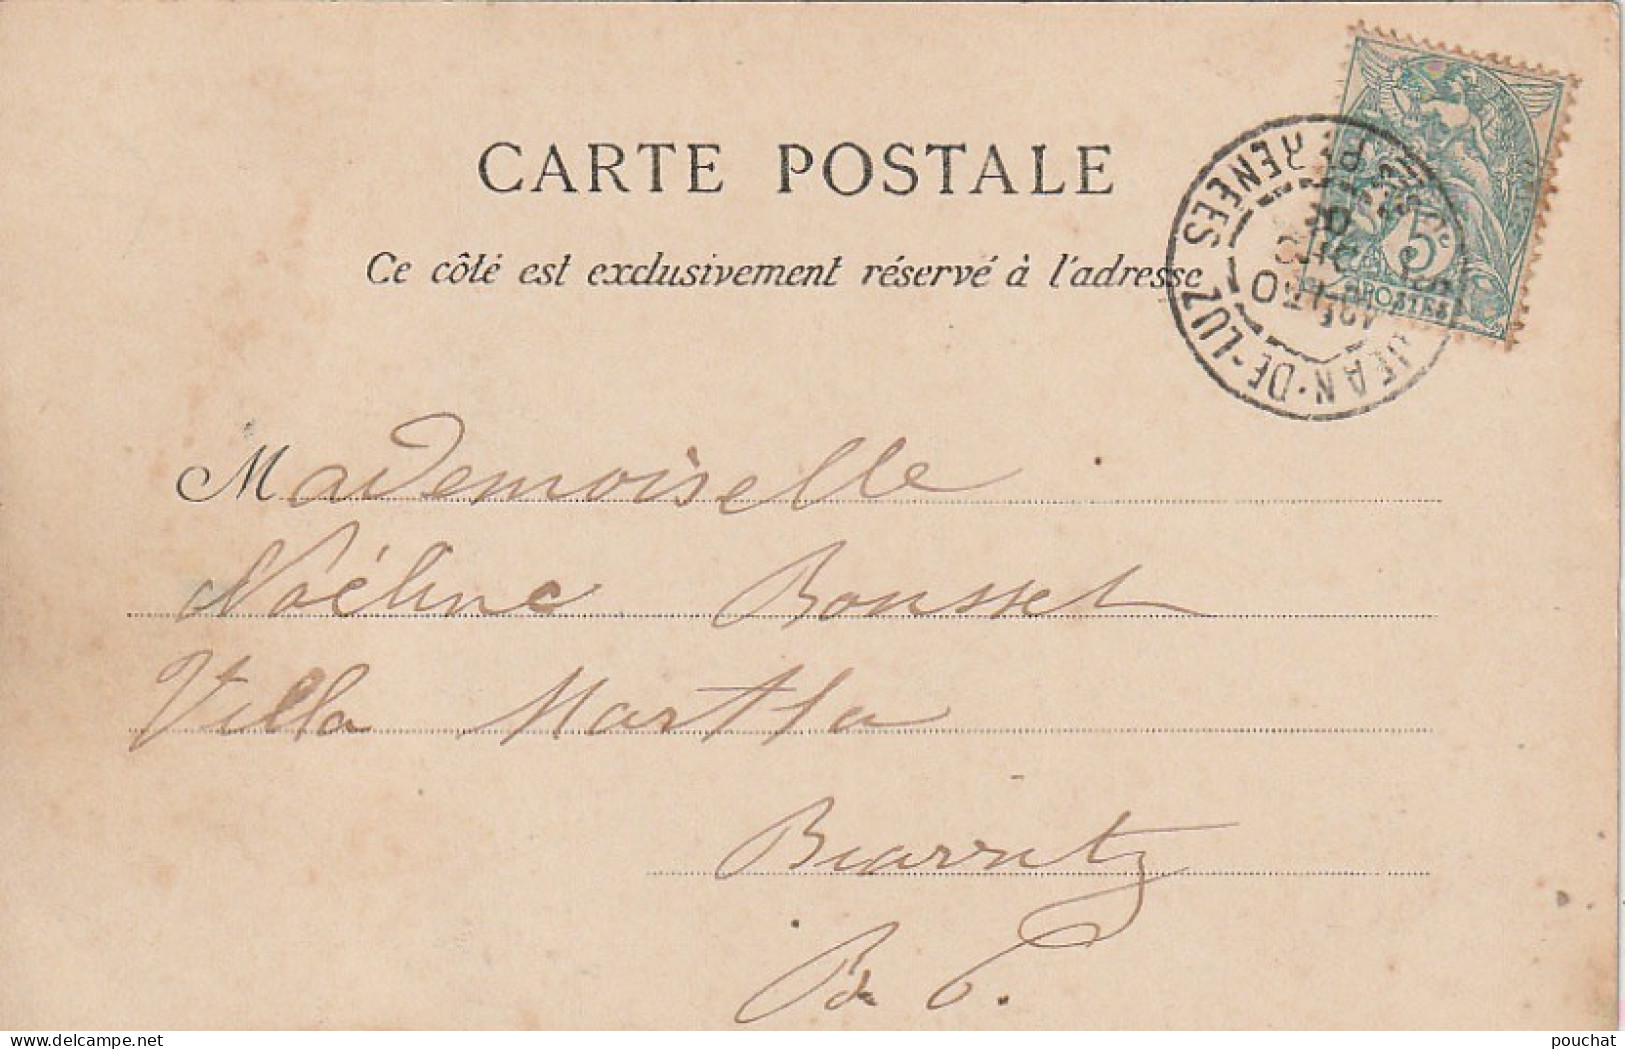 CARTE POSTALE
Ce côté est exclusivement réservé à l'adresse
5
POSTES
JEAN-DE-LUZ
PYRENEES
Mademoiselle
Noéline Bousset
Villa Martha
Biarritz
B. P.
www.delcampe.net
pouchat